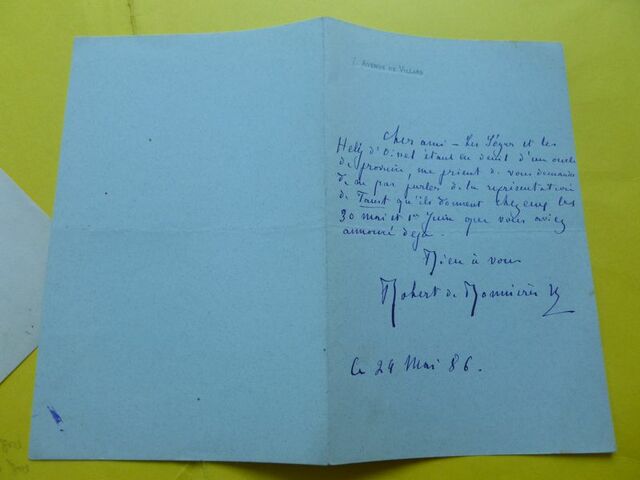 7. AVENUE DE VILLARS
Cher ami – Les Ségur et les
Helly d'Oissel étant en deuil d'un oncle
de province, me prient de vous demander
de ne pas parler de la représentation
de Faust qu'ils donnent chez eux les
30 mai et 1er Juin que vous aviez
annoncé déjà.
à vous
Robert de Bonnières
Ce 24 Mai 86.